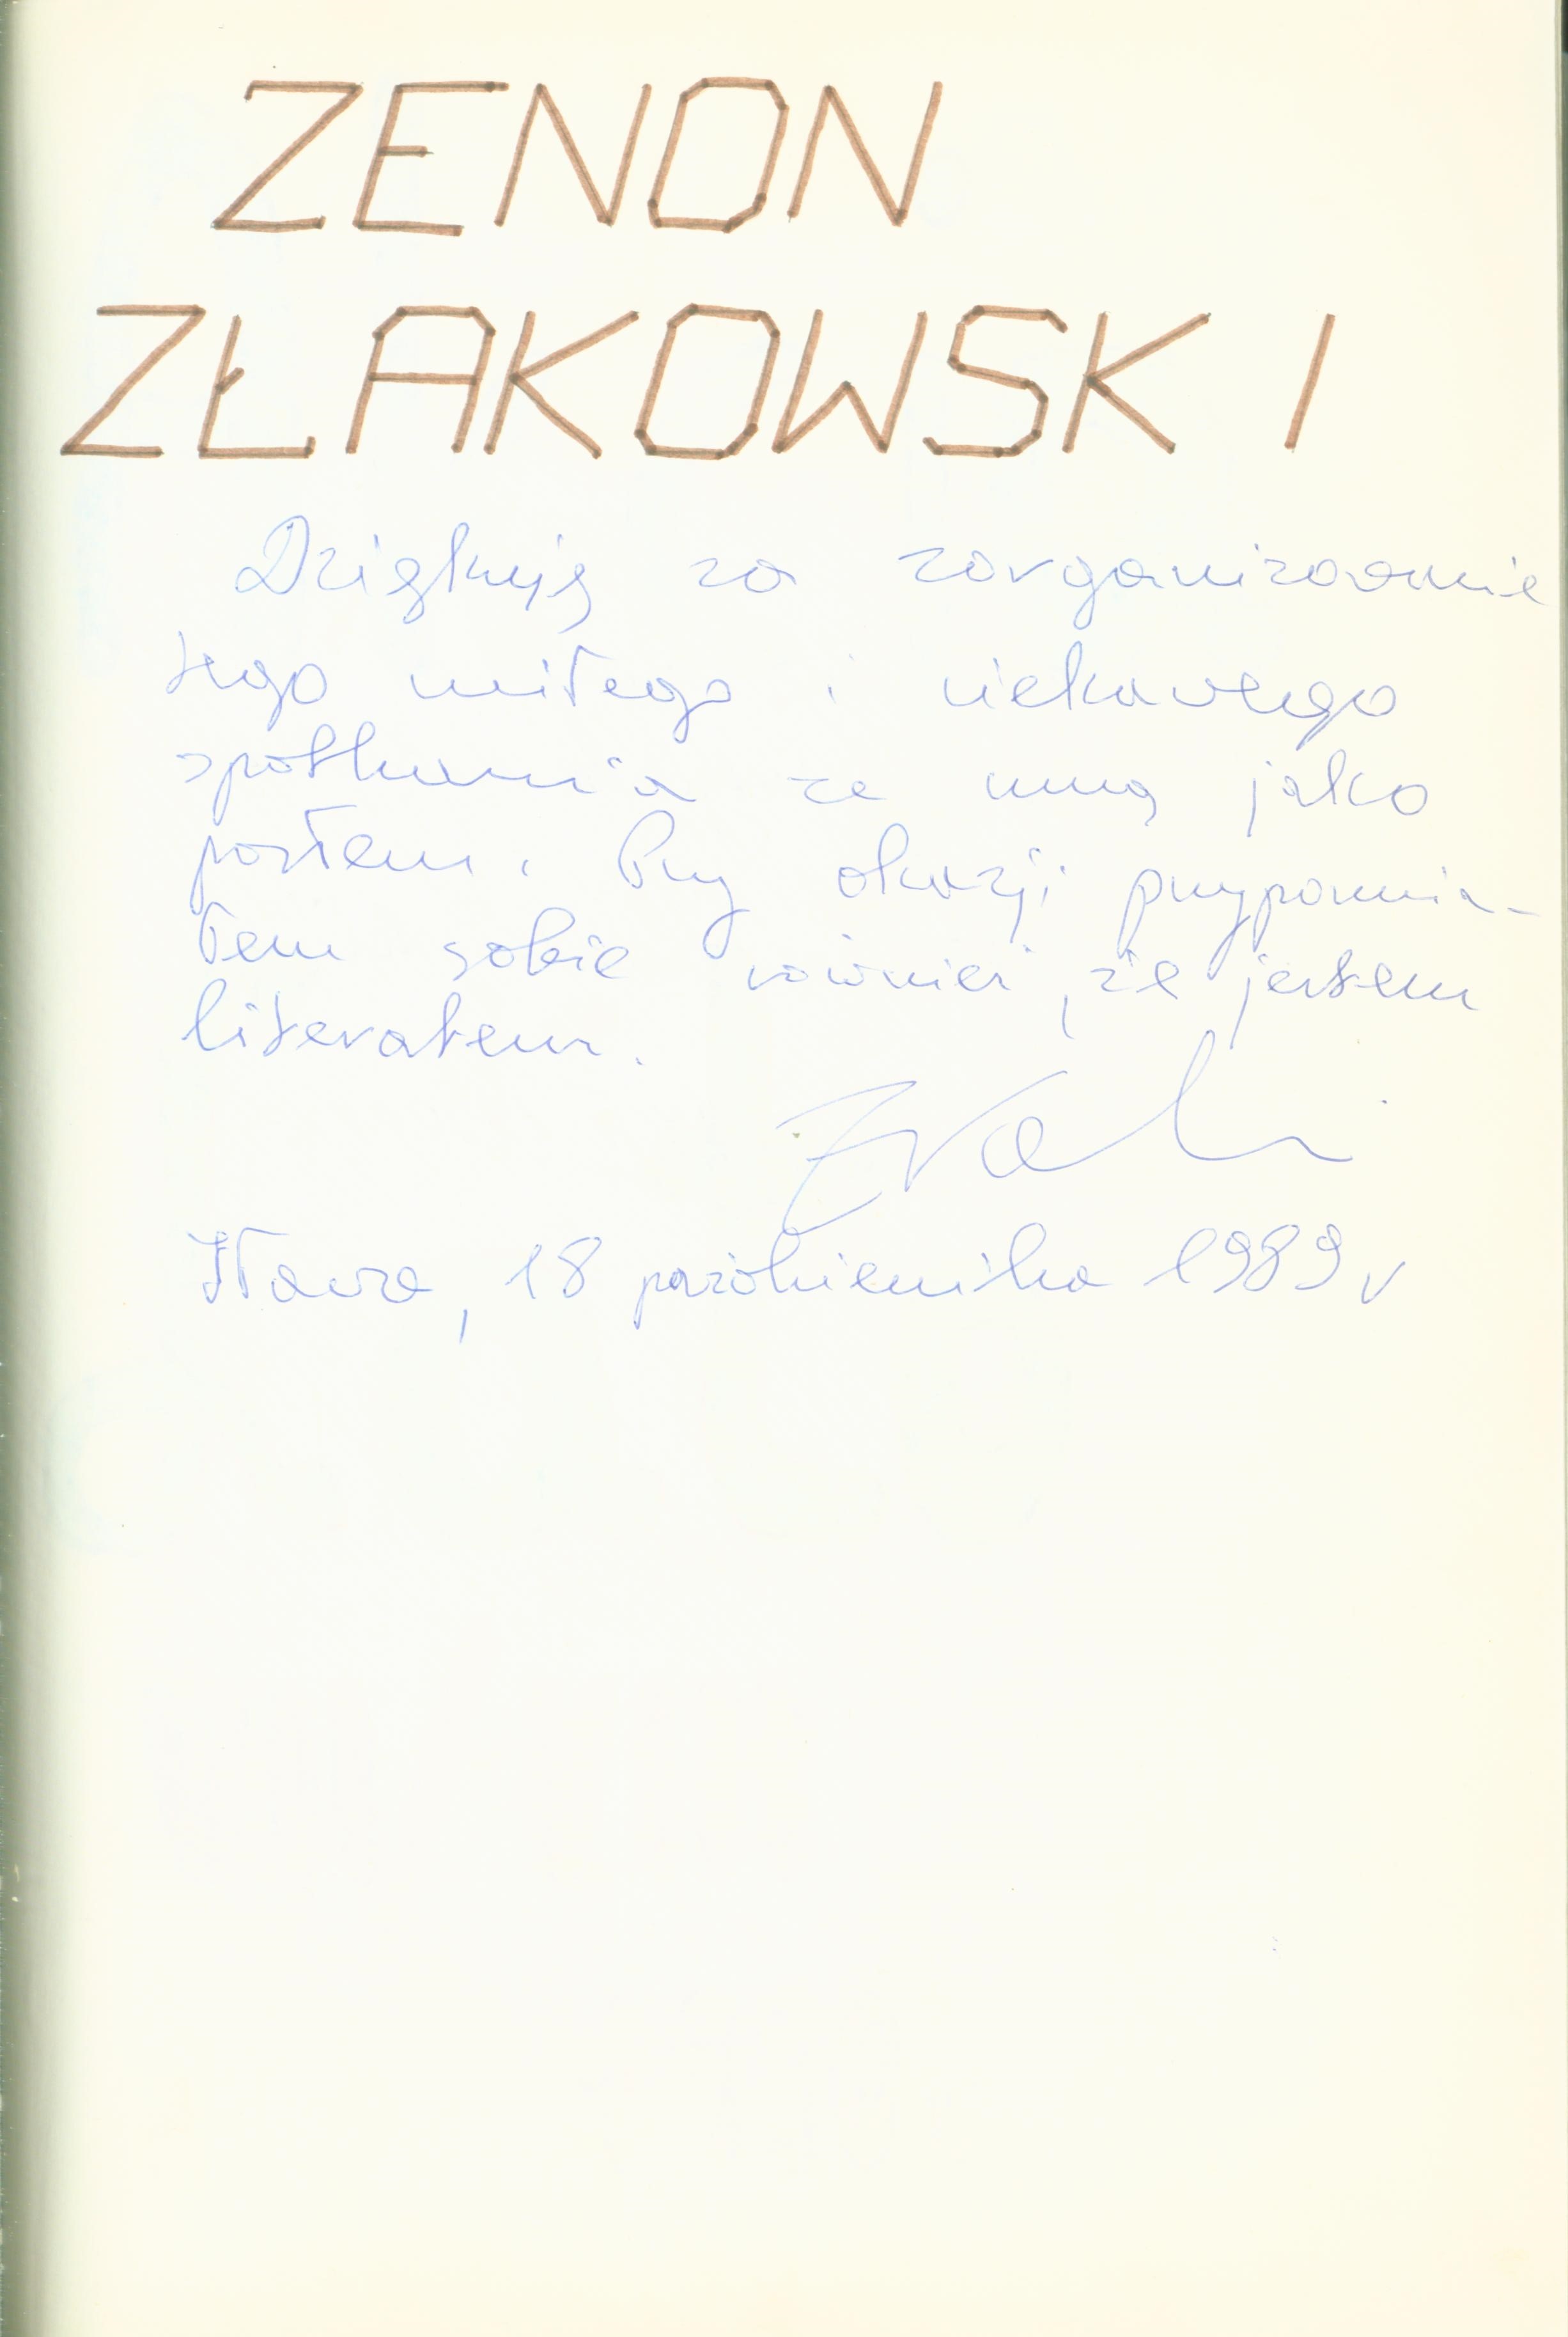 ZENON
ZŁAKOWSKI
Dziękuję za zorganizowanie
tego miłego i ciekawego
spotkania ze mną jako
posłem. Przy okazji przypomnia-
łem sobie również, że jestem
literatem.
Iława, 18 października 1989 r